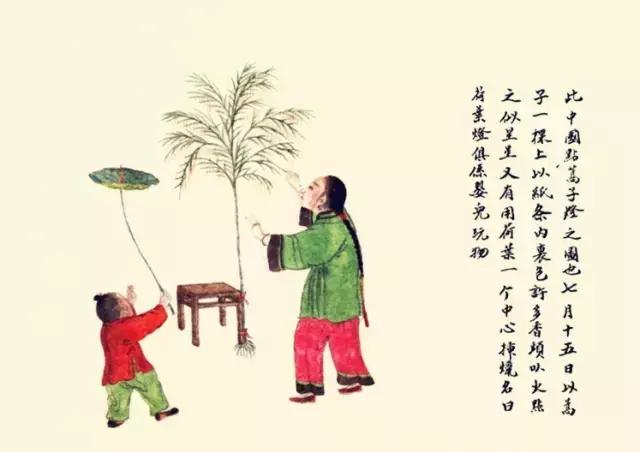 此中國點蒿子燈之圖也七月十五日以蒿
子一棵上以紙条內裹包許多香頭以火點
之似星星又有用荷葉一个中心揷燭名曰
荷葉燈俱係嬰兒玩物